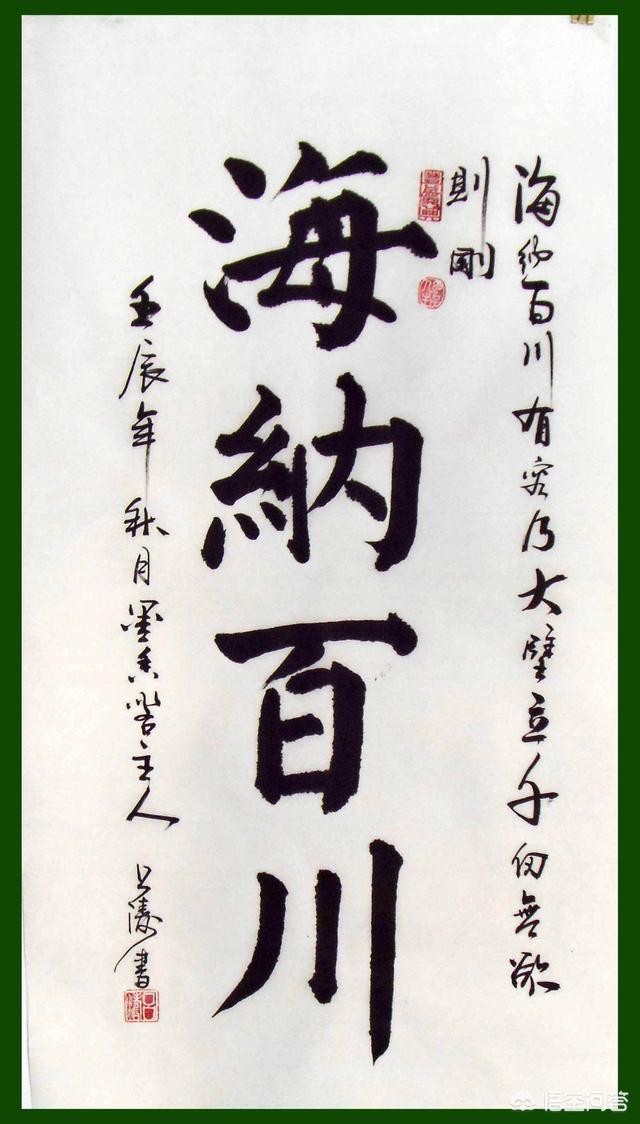 海納百川有容乃大壁立千仞無欲
則剛
海納百川
壬辰年秋月墨香主人
書
悟空问答